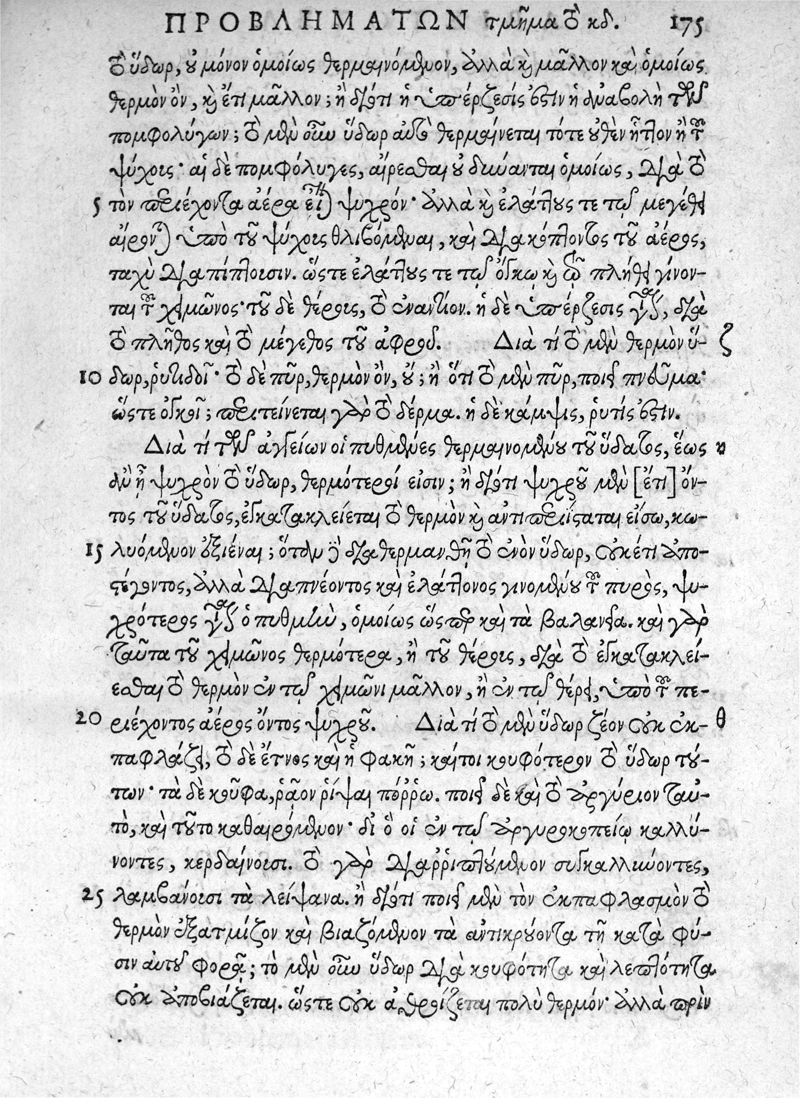 ΠΡΟΒΛΗΜΑΤΩΝ τμῆμα τὸ κδ. 175
τὸ ὕδωρ, οὐ μόνον ὁμοίως θερμαινόμενον, ἀλλὰ καὶ μᾶλλον καὶ ὁμοίως
θερμὸν ὂν, καὶ ἔτι μᾶλλον; ἢ διότι ἡ ὑπέρζεσίς ἐστιν ἡ ἀναβολὴ τῶν
πομφολύγων; τὸ μὲν οὖν ὕδωρ αὐτὸ θερμαίνεται τότε οὐθὲν ἧττον ἢ τοῦ
ψύχους· αἱ δὲ πομφόλυγες, αἴρεσθαι οὐ δύνανται ὁμοίως, διὰ τὸ
5 τὸν περιέχοντα ἀέρα εἶναι ψυχρόν· ἀλλὰ καὶ ἐλάττους τε τῷ μεγέθει
αἴρονται ὑπὸ τοῦ ψύχους θλιβόμεναι, καὶ διακόπτοντος τοῦ ἀέρος,
ταχὺ διαπίπτουσιν. ὥστε ἐλάττους τε τῷ ὄγκῳ καὶ τῷ πλήθει γίνον-
ται τοῦ χειμῶνος· τοῦ δὲ θέρους, τὸ ἐναντίον. ἡ δὲ ὑπέρζεσις γίνεται, διὰ
τὸ πλῆθος καὶ τὸ μέγεθος τοῦ ἀφροῦ. Διὰ τί τὸ μὲν θερμὸν ὕ- ζ
10 δωρ, ῥυτιδοῖ· τὸ δὲ πῦρ, θερμὸν ὂν, οὔ; ἢ ὅτι τὸ μὲν πῦρ, ποιεῖ πνεῦμα·
ὥστε ὀγκοῖ; περιτείνεται γὰρ τὸ δέρμα. ἡ δὲ κάμψις, ῥυτίς ἐστιν.
Διὰ τί τῶν ἀγγείων οἱ πυθμένες θερμαινομένου τοῦ ὕδατος, ἕως η
ἂν ᾖ ψυχρὸν τὸ ὕδωρ, θερμότεροί εἰσιν; ἢ διότι ψυχροῦ μὲν [ἔτι] ὄν-
τος τοῦ ὕδατος, ἐγκατακλείεται τὸ θερμὸν καὶ ἀντιπεριίσταται εἴσω, κω-
15 λυόμενον ἐξιέναι; ὅταν δὲ διαθερμανθῇ τὸ ἐνὸν ὕδωρ, οὐκέτι ἀπο-
στέγοντος, ἀλλὰ διαπνέοντος καὶ ἐλάττονος γινομένου τοῦ πυρὸς, ψυ-
χρότερος γίνεται ὁ πυθμὴν, ὁμοίως ὥσπερ καὶ τὰ βαλανεῖα. καὶ γὰρ
ταῦτα τοῦ χειμῶνος θερμότερα, ἢ τοῦ θέρους, διὰ τὸ ἐγκατακλεί-
εσθαι τὸ θερμὸν ἐν τῷ χειμῶνι μᾶλλον, ἢ ἐν τῷ θέρει, ὑπὸ τοῦ πε-
20 ριέχοντος ἀέρος ὄντος ψυχροῦ. Διὰ τί τὸ μὲν ὕδωρ ζέον οὐκ ἐκ- θ
παφλάζει, τὸ δὲ ἔτνος καὶ ἡ φακῆ; καίτοι κουφότερον τὸ ὕδωρ τού-
των· τὰ δὲ κοῦφα, ῥᾷον ῥίψαι πόρρω. ποιεῖ δὲ καὶ τὸ ἀργύριον ταὐ-
τὸ, καὶ τοῦτο καθαιρόμενον· δι' ὃ οἱ ἐν τῷ ἀργυροκοπείῳ καλλύ-
νοντες, κερδαίνουσι. τὸ γὰρ διαρριπτούμενον συγκαλλύνοντες,
25 λαμβάνουσι τὰ λείψανα. ἢ διότι ποιεῖ μὲν τὸν ἐκπαφλασμὸν τὸ
θερμὸν ἐξατμίζον καὶ βιαζόμενον τὰ ἀντικρούοντα τῇ κατὰ φύ-
σιν αὐτοῦ φορᾷ; τὸ μὲν οὖν ὕδωρ διὰ κουφότητα καὶ λεπτότητα
οὐκ ἀποβιάζεται. ὥστε οὐκ ἀθροίζεται πολὺ θερμόν· ἀλλὰ πρὶν